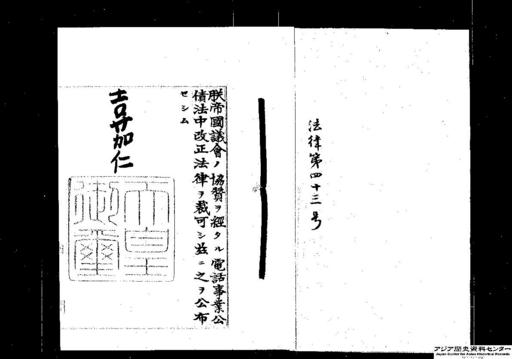 法律第四十三号
朕帝國議會ノ協賛ヲ經タル電話事業公
債法中改正法律ヲ裁可シ茲ニ之ヲ公布
セシム
嘉仁
天皇
御璽
アジア歴史資料センター
Japan Center for Asian Historical Records